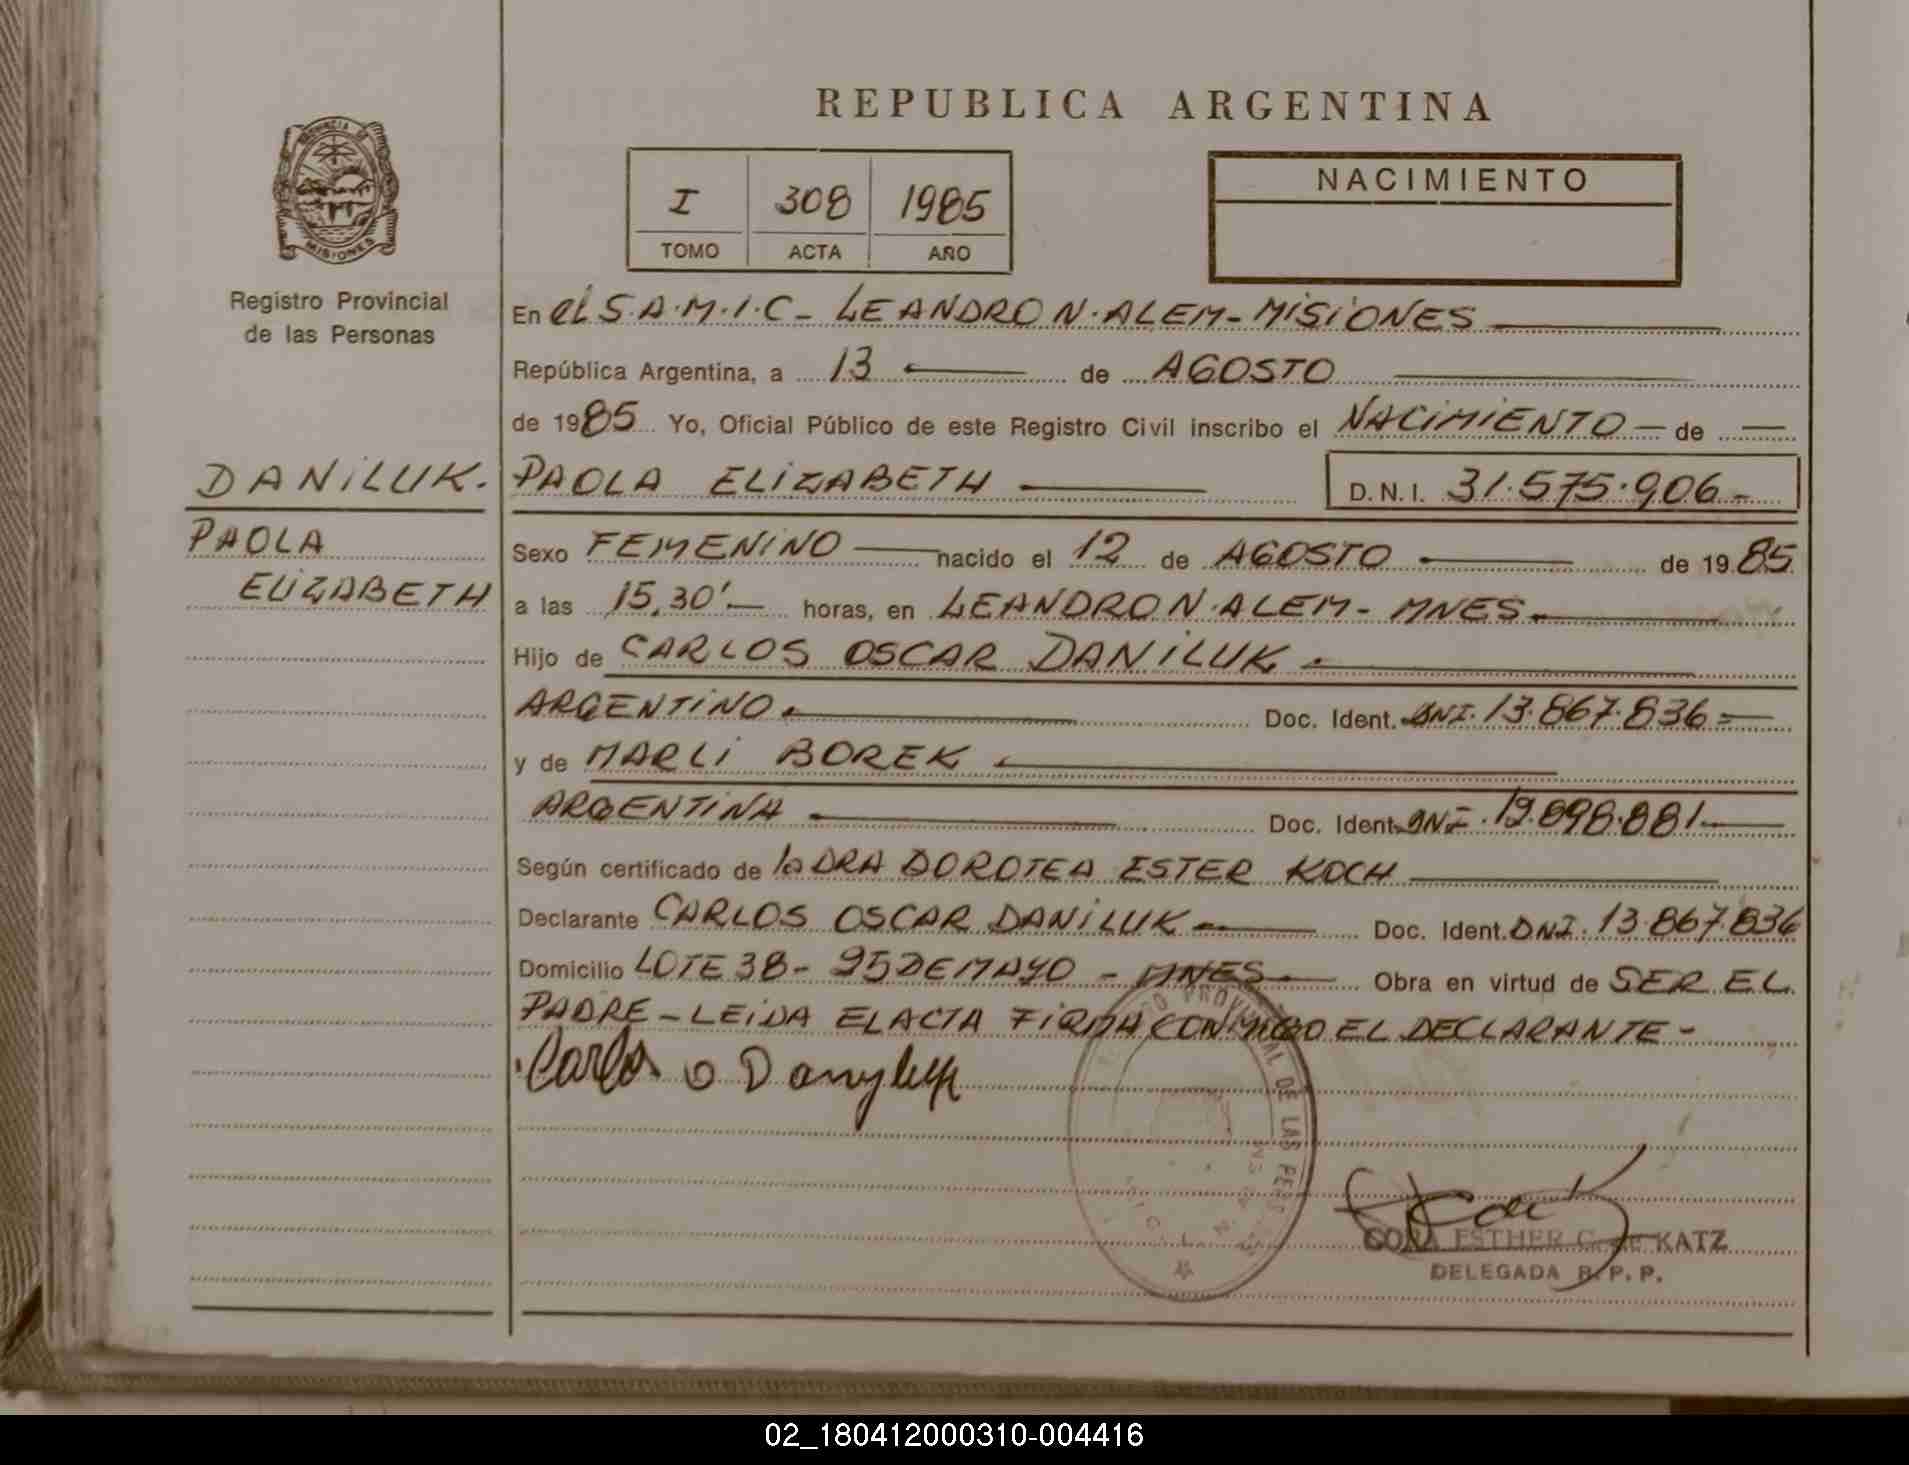 REPUBLICA ARGENTINA
PROVINCIA DE
MISIONES
Registro Provincial
de las Personas
I 308 1985
TOMO ACTA AÑO
NACIMIENTO
En el S.A.M.I.C- LEANDRO N. ALEM-MISIONES
República Argentina, a 13 de AGOSTO
de 1985 Yo, Oficial Público de este Registro Civil inscribo el NACIMIENTO de
DANILUK. PAOLA ELIZABETH D.N.I. 31.575.906-
PAOLA
ELIZABETH
Sexo FEMENINO nacido el 12 de AGOSTO de 1985
a las 15,30' horas, en LEANDRO N. ALEM- MNES.
Hijo de CARLOS OSCAR DANILUK.
ARGENTINO. Doc. Ident. DNI. 13.867.836=
y de MARLI BOREK
ARGENTINA Doc. Ident. DNI. 19.898.881
Según certificado de la DRA DOROTEA ESTER KOCH
Declarante CARLOS OSCAR DANILUK Doc. Ident. DNI. 13.867.836
Domicilio LOTE 38- 25 DE MAYO - MNES Obra en virtud de SER EL
PADRE-LEIDA EL ACTA FIRMA CONMIGO EL DECLARANTE-
Carlos O
DE LAS
ESTHER C. de KATZ
DELEGADA R.P.P.
02_180412000310-004416